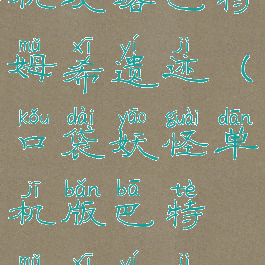 mǔ xī yí jì
姆希遗迹(
kǒu dài yāo guài dān
口袋妖怪单
jī bǎn bā tè
机版巴特
mǔ xī yí jì